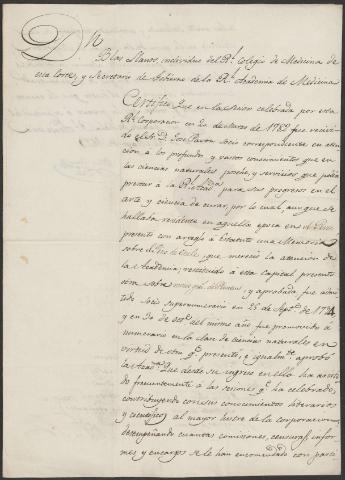 Dn
Blas Llanos, individuo del Rl. Colegio de Medicina de
esta Corte, y Secretario de Gobierno de la Rl. Academia de Medicina
Certifico Que en la Sesion celebrada por esta
Rl. Corporacion en 2 de Marzo de 1789 fue recivi-
do el Sr. D. Jose Pavon Socio correspondiente en aten-
cion a los profundos y vastos conocimientos que en
las ciencias naturales posehe, y servicios que podia
prestar a la Rl. Acada. para sus progresos en el
arte y ciencia de curar, por lo cual, aunque se
hallaba residente en aquella epoca en el Peru
presentó con arreglo a Estatuto una Memoria
sobre que mereció la atencion de
la Academia; restituido a esta Capital presentó
otra sobre y aprobada fue admi-
tido Socio supernumerario en 25 de Septe. de 1794,
y en 30 de del mismo año fue promovido a
numerario en la clase de ciencias naturales en
virtud de otra qe. presentó, e igualmte. aprobó
la Acada. Que desde su ingreso en ella ha asisti-
do frecuentemente a las sesiones qe. ha celebrado,
contribuyendo con sus conocimientos literarios
y cientificos al mayor lustre de la corporacion,
desempeñando cuantas comisiones, censuras, infor-
mes y encargos se le han encomendado con parti-